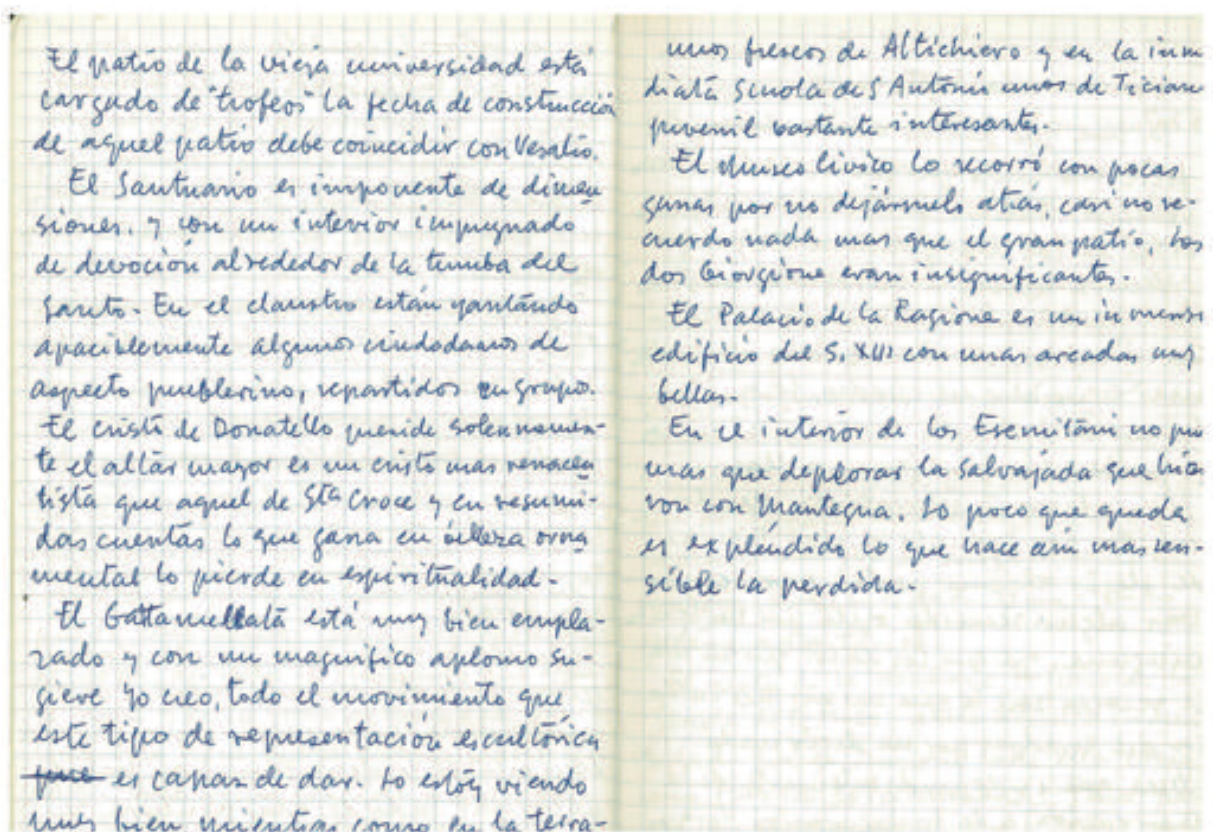 El patio de la vieja universidad está
cargado de "trofeos" la fecha de construcción
de aquel patio debe coincidir con Vesalio.
El Santuario es imponente de dimen
siones. y con un interior impregnado
de devoción alrededor de la tumba del
Santo. En el claustro están yantando
apaciblemente algunos ciudadanos de
aspecto pueblerino, repartidos en grupo.
El cristo de Donatello preside solemnemen-
te el altar mayor es un cristo mas renacen
tista que aquel de Sta Croce y en resumi-
das cuentas lo que gana en belleza orna
mental lo pierde en espiritualidad.
El Gattamelata está muy bien empla-
zado y con un magnifico aplomo su-
giere yo creo, todo el movimiento que
este tipo de representación escultórica
es capaz de dar. Lo estóy viendo
muy bien mientras como en la terra-
unos frescos de Altichiero y en la inm
diata Scuola de S Antonio unos de Ticiano
juvenil bastante interesantes.
El Museo Civico lo recorró con pocas
ganas por no dejármelo atrás, casi no re-
cuerdo nada mas que el gran patio, los
dos Giorgione eran insignificantes.
El Palacio de la Ragione es un inmenso
edificio del S. XIII con unas arcadas muy
bellas.
En el interior de los Eremitani no pu
mas que deplorar la salvajada que hicie
ron con Mantegna. Lo poco que queda
es expléndido lo que hace aún mas sen-
sible la perdida.